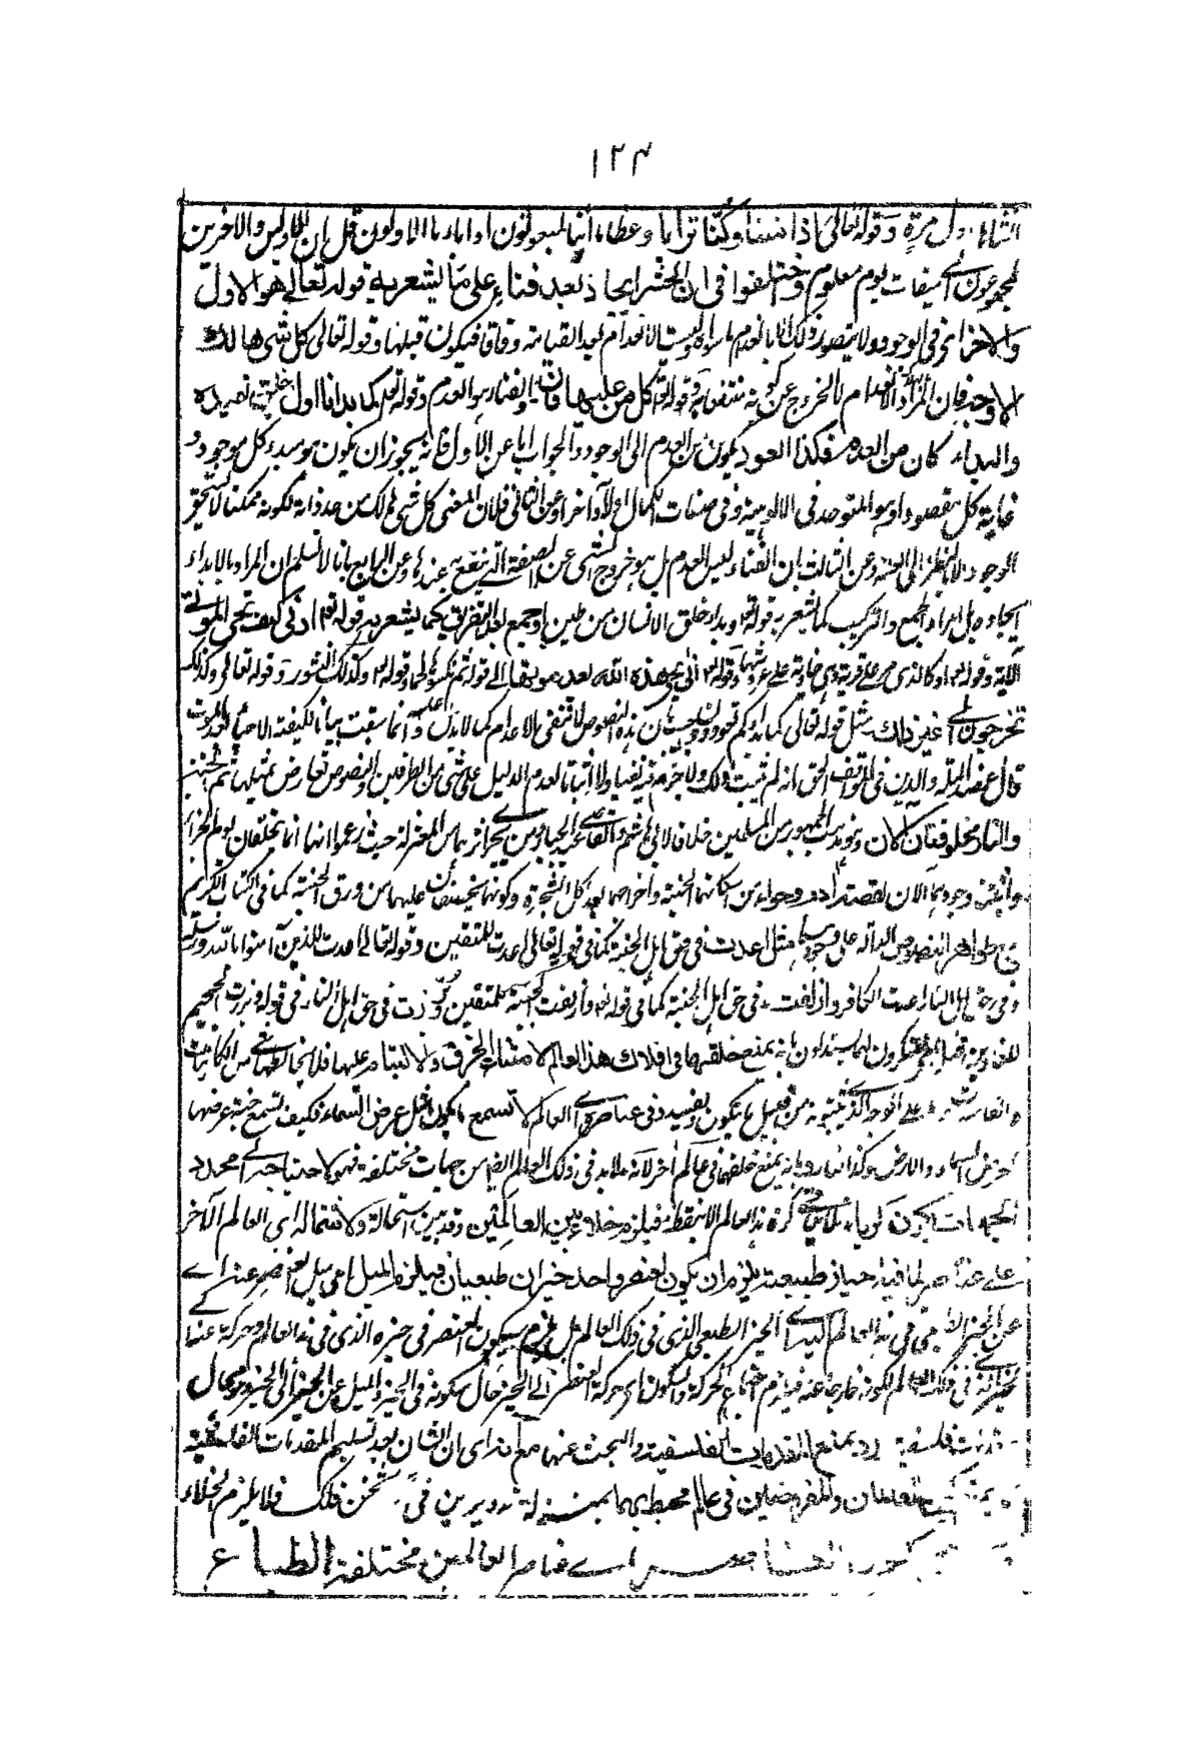 ١٢٤
انشاها اول مرة وقوله تعالى ائذا متنا وكنا ترابا وعظاما أئنا لمبعوثون اواباءنا الاولون قل ان الاولين والاخرين
لمجموعون الى ميقات يوم معلوم واختلفوا فى ان الحشر ايجاد بعد فناء على ما يشعر به قوله تعالى هو الاول
والاخر اى فى الوجود ولا يتصور ذلك الا بانعدام ما سواه وليست الانعدام بعد القيامة وفاقا فيكون قبلها وقوله تعالى كل شئ هالك
الا وجهه فان المراد الانعدام لا الخروج عن كونه منتفعا به وقوله تعالى كل من عليها فان والفناء هو العدم وقوله تعالى كما بدأنا اول خلق نعيده
والبداء كان من العدم فكذا العود يكون من العدم الى الوجود والجواب اما عن الأول فانه يجوز ان يكون هو مبدء كل موجود و
غاية كل مقصود او هو المتوحد فى الالوهية وفى صفات الكمال اولا وآخرا وعن الثانى فلان المعنى كل شئ هالك من حد ذاته لكونه ممكنا لا يستحق
الوجود الا بالنظر الى العلة وعن الثالث بان الفناء ليس العدم بل هو خروج الشئ عن الصفة التى ينتفع به عندها وعن الرابع بانا لا نسلم ان المراد بالابداء
ايجاده بل ايراد الجمع والتركيب كما يشعر به قوله تعالى وبدا خلق الانسان من طين او جمع بعد التفريق كما يشعر به قوله تعالى ارنى كيف تحى الموتى
الآية وقوله تعالى او كالذى مر على قرية وهى خاوية على عروشها وقوله تعالى انى يحى هذه الله بعد موتها الى قوله ثم نكسوها لحما وقوله تعالى وكذلك النشور وقوله تعالى وكذلك
تخرجون الى غير ذلك مثل قوله تعالى كما بدأكم تعودون والجواب ان هذه النصوص لا تنفى الاعدام كما لا تدل عليه وانما سيقت بيانا لكيفية الاحياء بعد الموت
قال عضد الملة والدين فى المواقف الحق انه لم يثبت ذلك ولا جزم فيه نفيا ولا اثباتا لعدم الدليل على شئ من الطرفين والنصوص تعارض بمثلها ثم الجنة
والنار مخلوقتان الآن وهو مذهب الجمهور من المسلمين خلافا لابى هاشم والقاضى عبد الجبار ومن يجرى مجراهما من المعتزلة حيث زعموا انهما انما يخلقان يوم الجزاء
واثبتوا وجودهما الآن لقصة آدم وحواء من اسكانهما الجنة واخراجهما بعد اكل الشجرة وكونهما يخصفان عليهما من ورق الجنة كما فى الكتاب الكريم
مع ظواهر النصوص الدالة على وجودهما مثل اعدت فى حق اهل الجنة كما فى قوله تعالى اعدت للمتقين وقوله تعالى اعدت للذين آمنوا بالله ورسله
وفى حق اهل النار اعدت للكافرين وازلفت فى حق اهل الجنة كما فى قوله تعالى وازلفت الجنة للمتقين وبرزت فى حق اهل النار فى قوله وبرزت الجحيم
للغاوين المنكرون لهما يستدلون بانه يمتنع خلقهما فى افلاك هذا العالم لامتناع الخرق والالتيام عليها فلا يخالطهما شئ من الكائنات
على الوجه الذى يثبتونه من قبيل ما يتكون ويفسد وفى عناصره اى العالم لا تسع ما يكون مثل عرض السماء فكيف تسع جنة عرضها
عرض السماء والارض وكذا النار وبانه يمتنع خلقهما فى عالم آخر لانه لا بد فى ذلك العالم ايضا من جهات مختلفة فهو لاحتياجه الى محدد
الجهات يكون كريا فلا يلاقى كرة هذا العالم الا بنقطة فيلزم خلاء بين العالمين وقد تبين استحالته ولاشتماله اى العالم الآخر
على عناصر لها فيه احياز طبيعية يلزم ان يكون لعنصر واحد حيزان طبيعيان فيلزم الميل اى ميل العنصر عنه اى
عن الحيز الذى فى هذا العالم اليه اى الحيز الطبعى الذى فى ذلك العالم بل يلزم سكون العنصر فى حيزه الذى فى هذا العالم وحركته عنه الى
الحيز الذى فى ذلك العالم لكونه خارجا عنه فيلزم اجتماع الحركة والسكون اى حركة العنصر الى الحيز حال سكونه فى الحيز والميل عن الحيز الى الحيز وهو محال
مقدمات فلسفية ورد بمنع المقدمات الفلسفية والبحث عنها مع انه اى ان الشان بعد تسليم المقدمات الفلسفية
العالمان والمفروضان فى عالم محيط بهما بمنزلة تدويرين فى ثخن فلك فلا يلزم الخلاء
كون العناصر اى عناصر العالمين مختلفة الطبائع